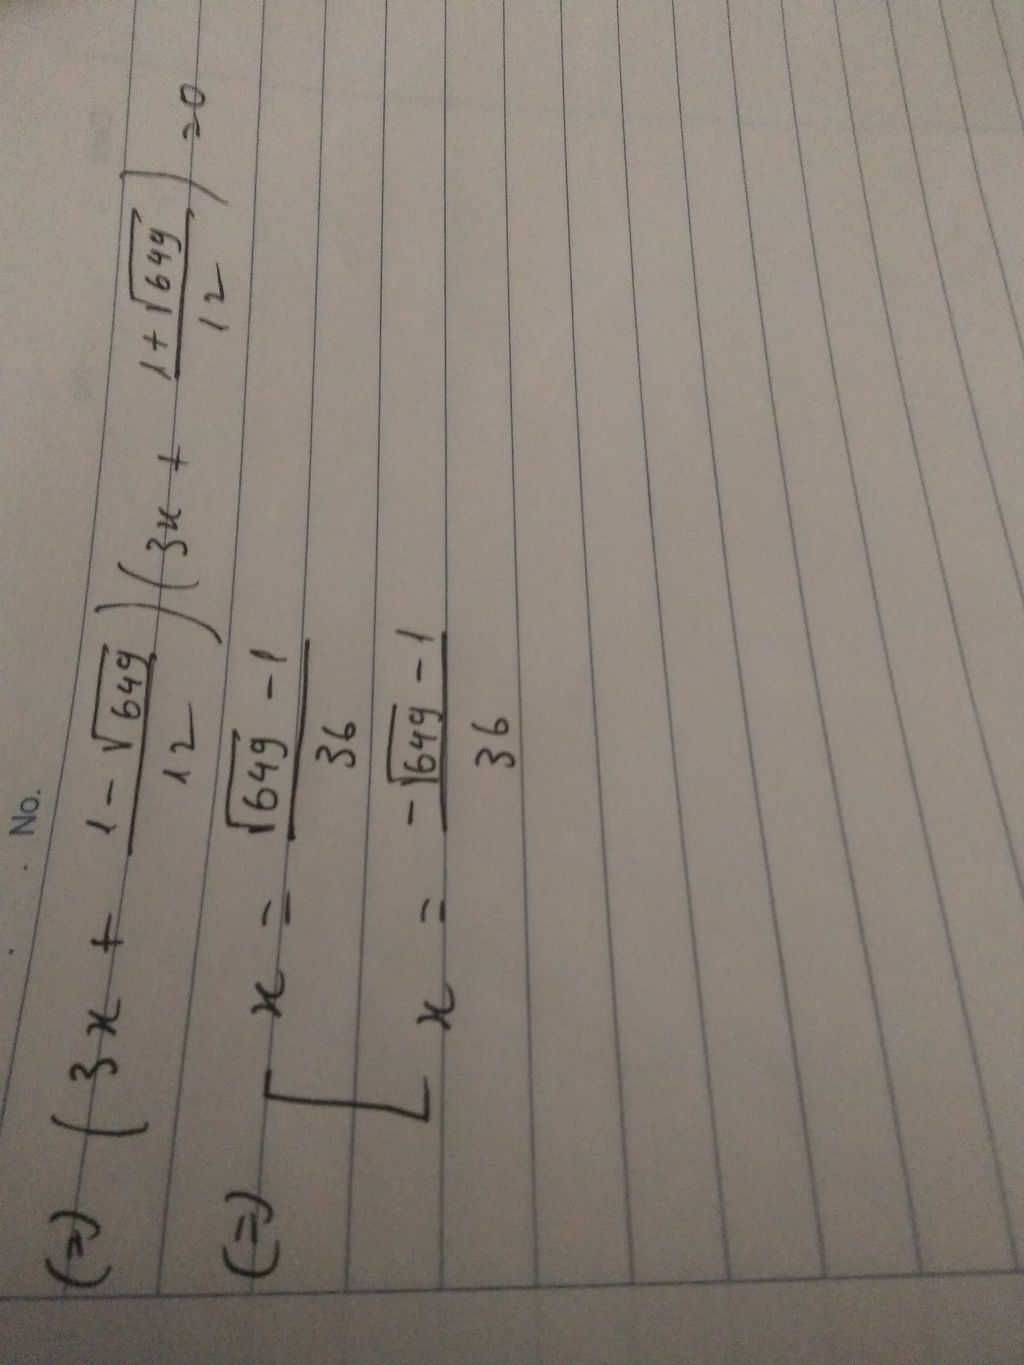 No.
(=) (3x + (1 - √649)/12) (3x + (1 + √649)/12) = 0
(=) [ x = (√649 - 1)/36
x = (-√649 - 1)/36